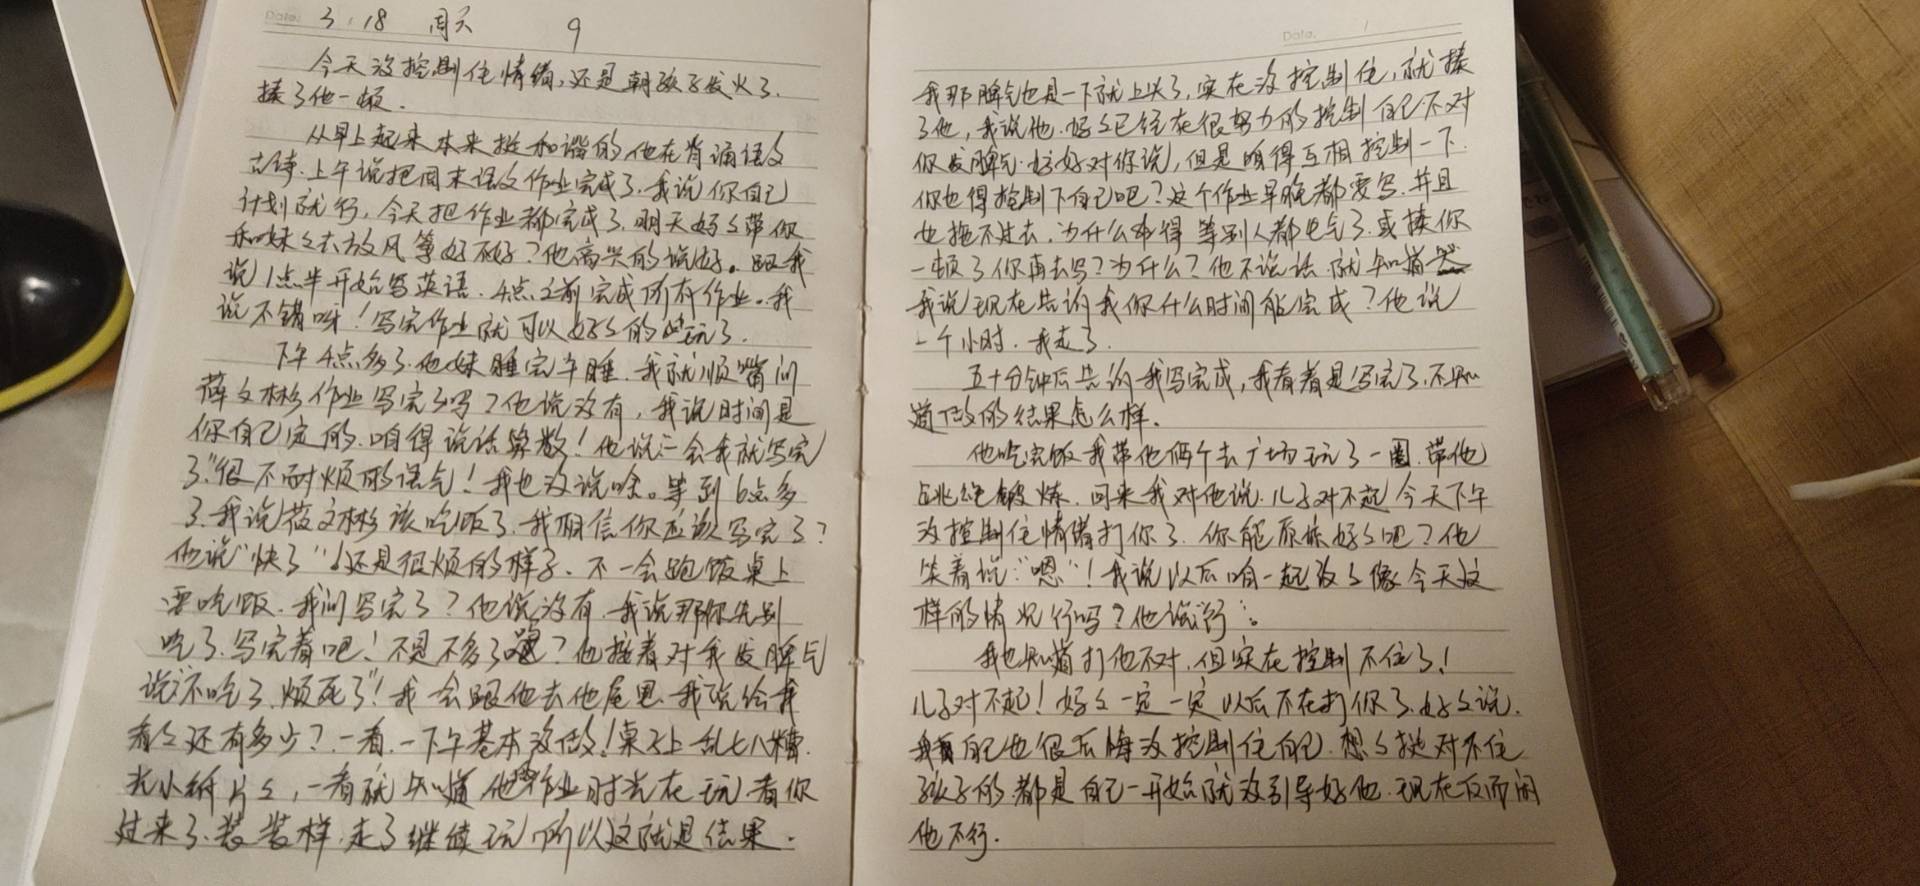 Date: 3 . 18 周天 9
今天没控制住情绪,还是朝孩子发火了.
揍了他一顿.
从早上起来本来挺和谐的,他在背诵语文
古诗.上午说把周末语文作业完成了.我说你自己
计划就行,今天把作业都完成了.明天好好带你
和妹妹去放风筝好不好?他高兴的说好。跟我
说1点半开始写英语.4点之前完成所有作业。我
说不错呀!写完作业就可以好好的玩了.
下午4点多了.他妹睡完午睡.我就顺嘴问
薛文彬作业写完了吗?他说没有,我说时间是
你自己定的.咱得说话算数!他说"一会我就写完
了."很不耐烦的语气!我也没说啥。等到6点多
了.我说薛文彬该吃饭了.我相信你应该写完了?
他说"快了"!还是很烦的样子.不一会跑饭桌上
要吃饭.我问写完了?他说没有.我说那你先别
吃了.写完着吧!不是不多了嘛?他接着对我发脾气
说"不吃了.烦死了"!我会跟他去他屋里.我说给我
看看还有多少?一看.一下午基本没做!桌子上乱七八糟.
光小纸片片,一看就知道他作业时光在玩着你
过来了.装装样.走了继续玩,所以这就是结果.
Date. 1
我那脾气也是一下就上头了,实在没控制住,就揍
了他,我说他.妈妈已经在很努力的控制自己不对
你发脾气.好好对你说,但是咱得互相控制一下.
你也得控制下自己吧?这个作业早晚都要写.并且
也拖不过去.为什么非得等别人都生气了.或揍你
一顿了你再去写?为什么?他不说话.就知道哭
我说现在告诉我你什么时间能完成?他说
一个小时.我走了.
五十分钟后告诉我写完成,我看着是写完了.不知
道做的结果怎么样.
他吃完饭我带他俩个去广场玩了一圈.带他
跳绳锻炼.回来我对他说.儿子对不起今天下午
没控制住情绪打你了.你能原谅妈妈吧?他
笑着说:"嗯"!我说以后咱一起改了像今天这
样的情况行吗?他说行。
我也知道打他不对.但实在控制不住了!
儿子对不起!妈妈一定一定以后不在打你了.好好说.
我自己也很后悔没控制住自己.想想挺对不住
孩子的.都是自己一开始就没引导好他.现在反而闹
他不行.